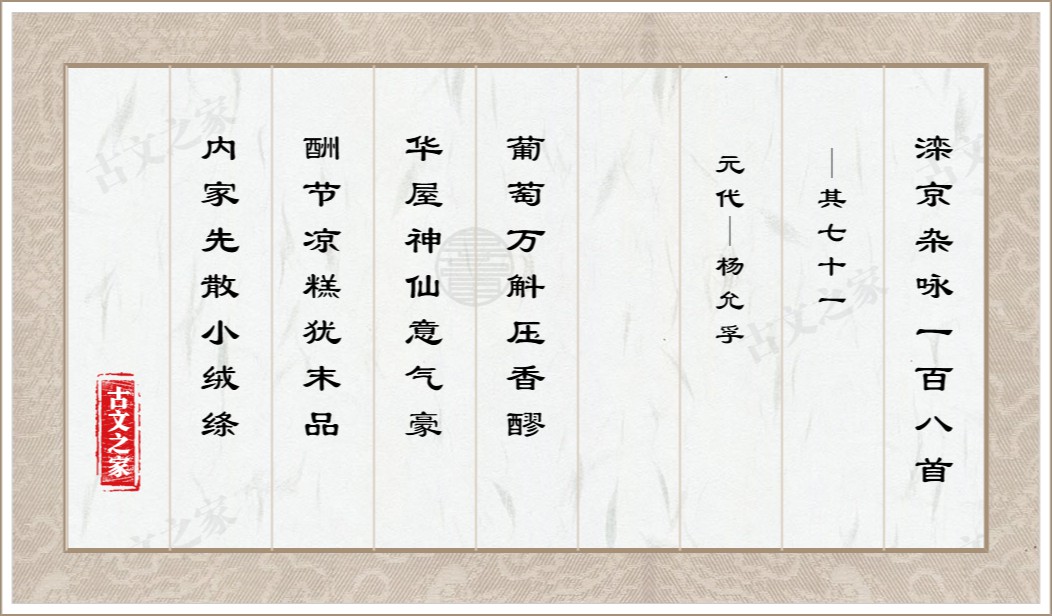 滦京杂咏一百八首
—其七十一
元代—杨允孚
葡萄万斛压香醪
华屋神仙意气豪
酬节凉糕犹末品
内家先散小绒绦
古文之家
古文之家
古文之家
古文之家